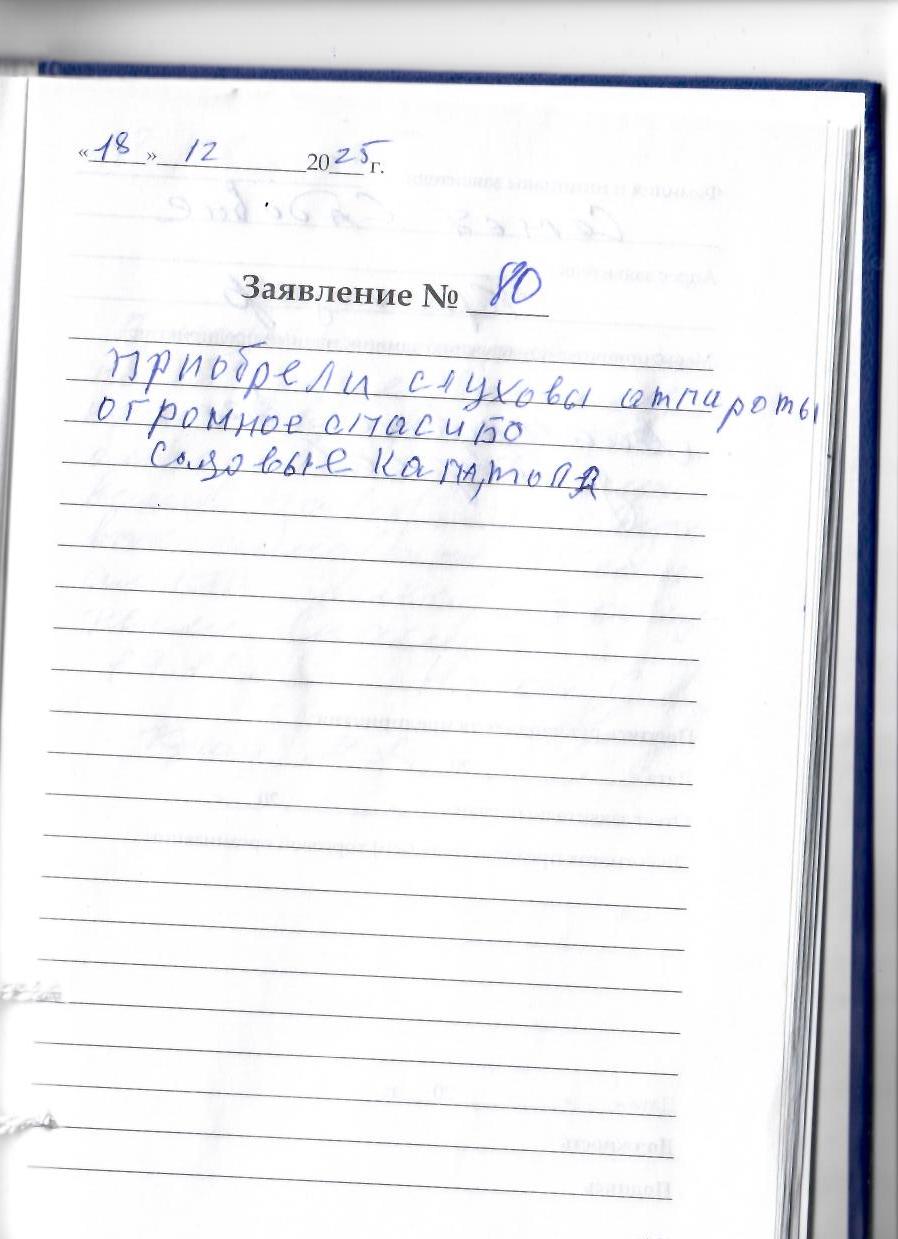 «18» 12 2025 г.
Заявление № 80
приобрели слуховы аппароты
огромное спасибо
Садовые